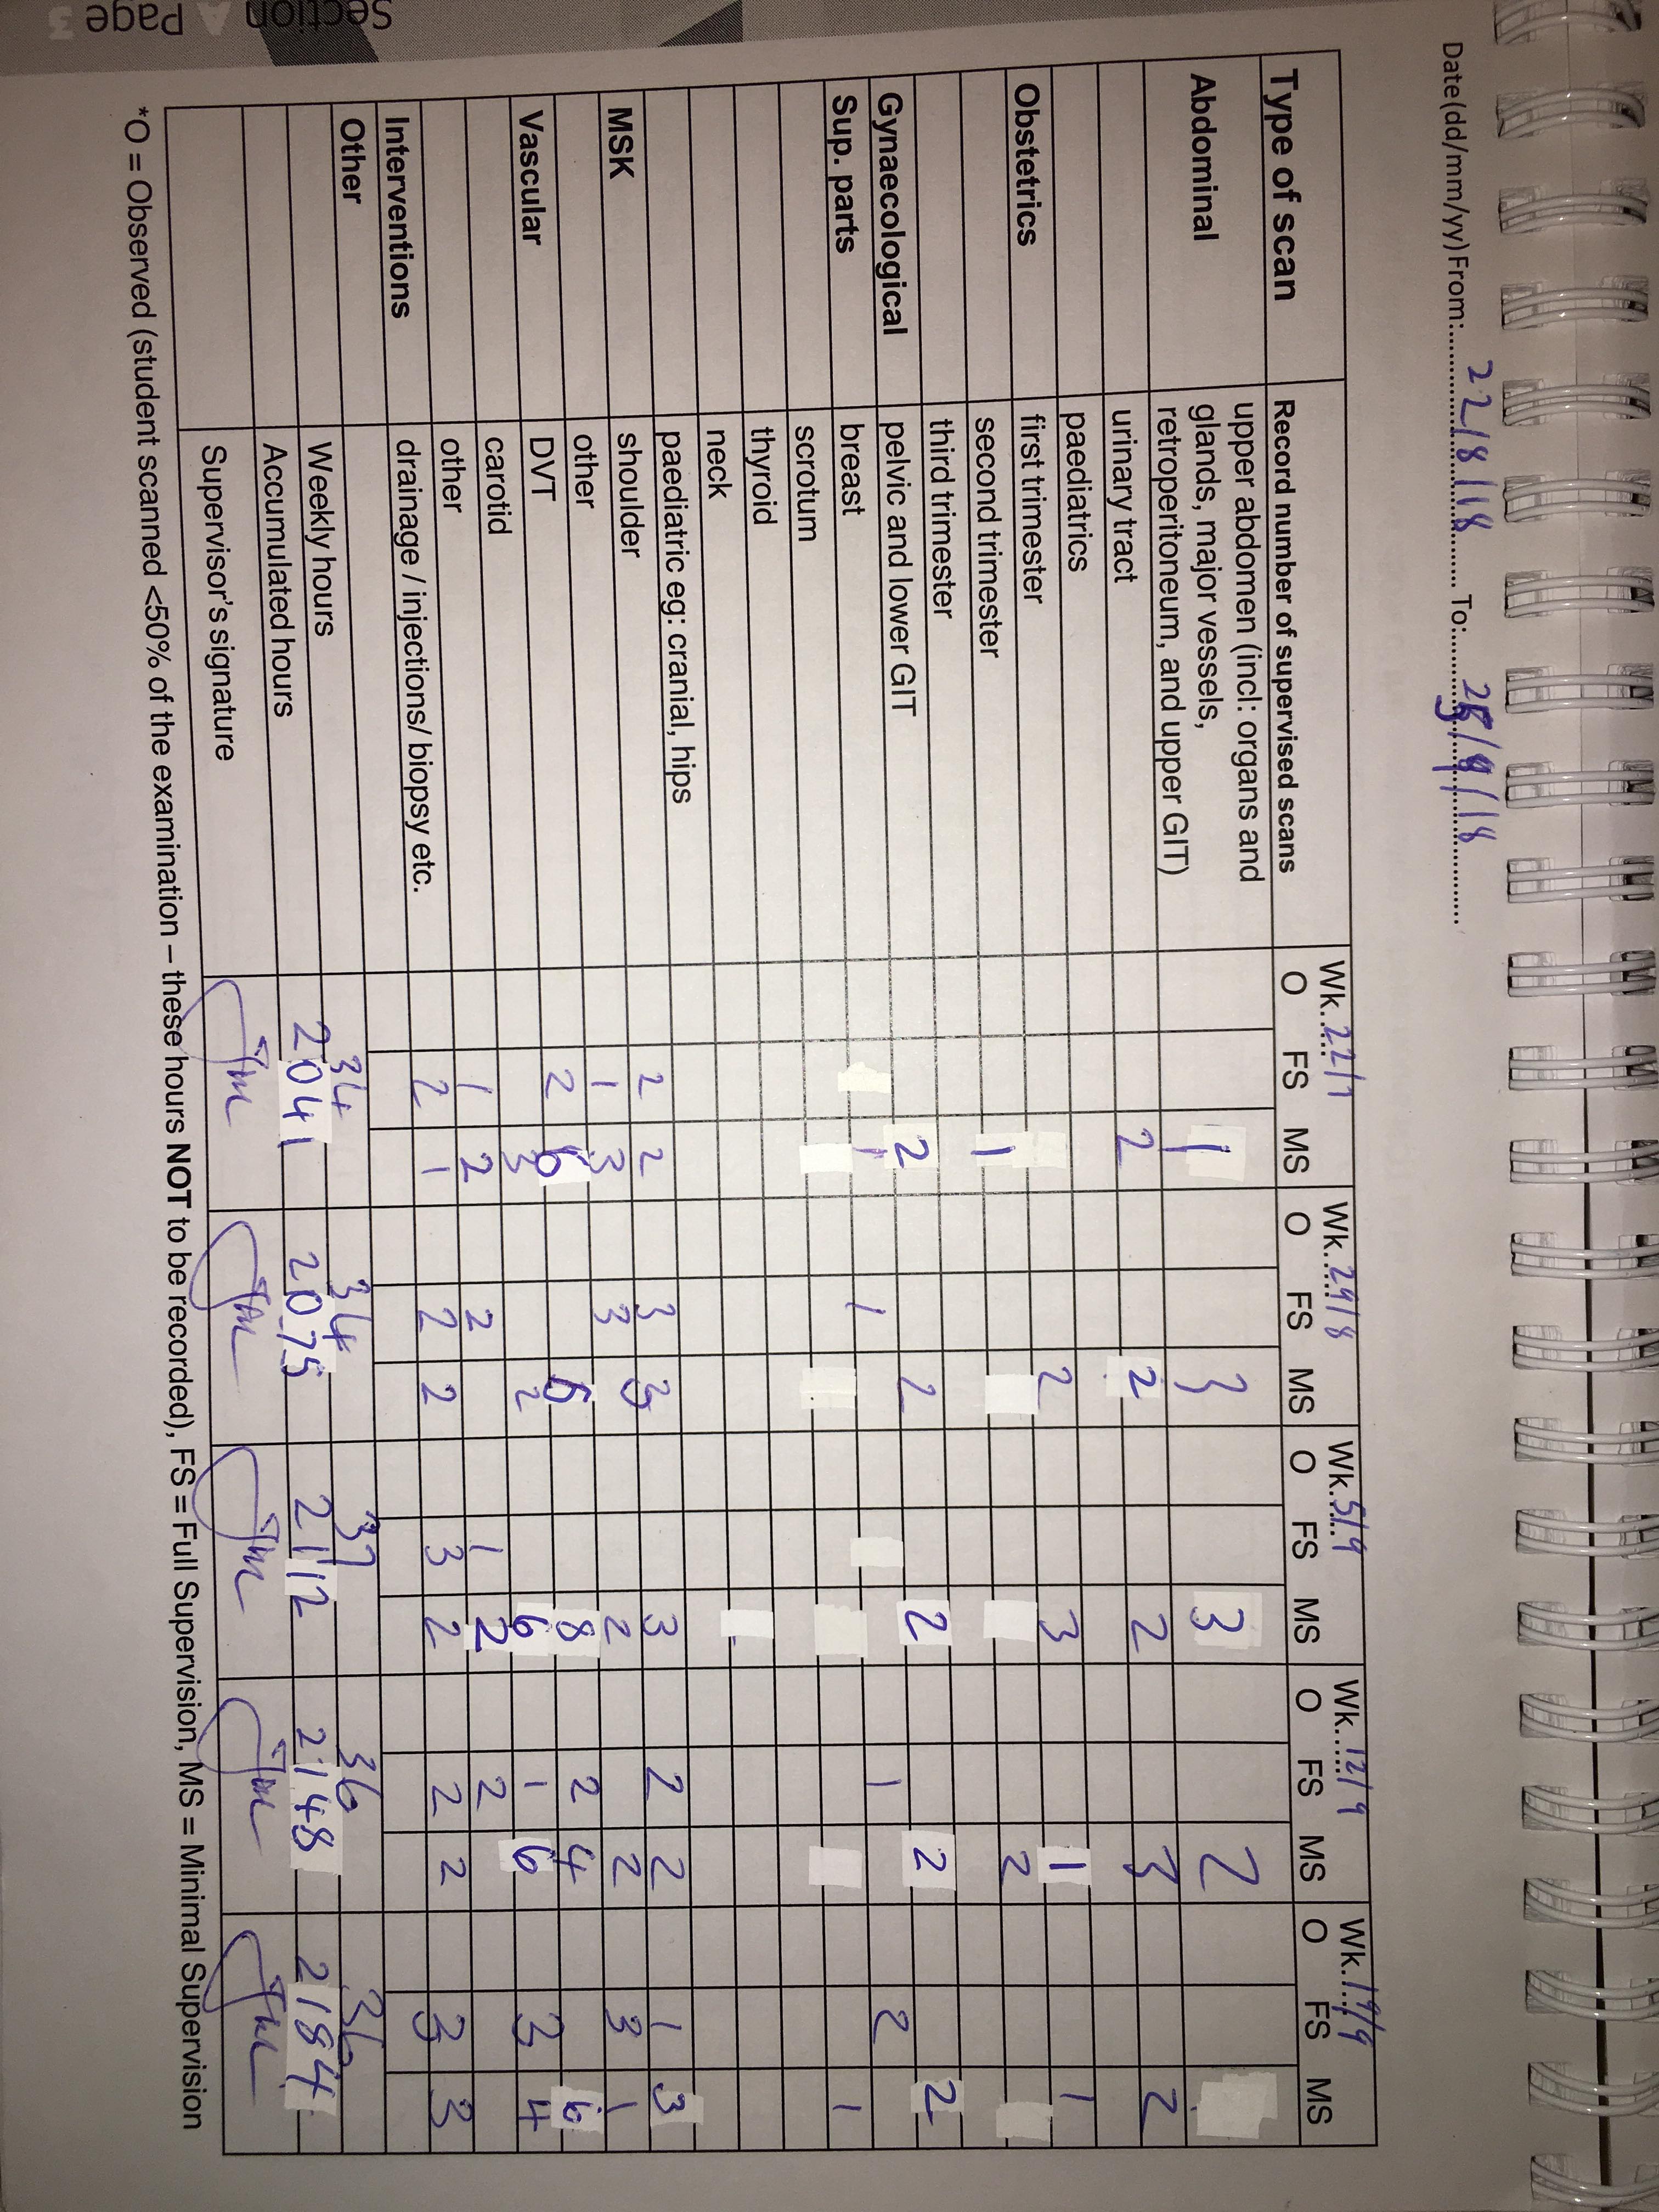 Date(dd/mm/yy) From: 22/8/18 To: 25/9/18
Type of scan Record number of supervised scans Wk. 22/8 Wk. 29/8 Wk. 5/9 Wk. 12/9 Wk. 19/9
O FS MS O FS MS O FS MS O FS MS O FS MS
Abdominal upper abdomen (incl: organs and
glands, major vessels, 1 3 3 2
retroperitoneum, and upper GIT)
urinary tract 2 2 2 3 2
paediatrics
Obstetrics first trimester 2 3 1 1
second trimester 1 2
third trimester
Gynaecological pelvic and lower GIT 2 2 2 2 2
Sup. parts breast 1 1 1 2
scrotum 1
thyroid
neck
paediatric eg: cranial, hips
MSK shoulder 2 2 3 3 3 2 2 1 3
other 1 3 3 2 2 3 1
Vascular DVT 2 6 6 8 2 4 6
carotid 3 2 6 1 6 3 4
other 1 2 2 1 2 2
Interventions drainage / injections/ biopsy etc. 2 1 2 2 3 2 2 2 3 3
Other
Weekly hours 34 34 37 36 36
Accumulated hours 2041 2075 2112 2148 2184
Supervisor's signature
*O = Observed (student scanned <50% of the examination – these hours NOT to be recorded), FS = Full Supervision, MS = Minimal Supervision
Section A Page 3